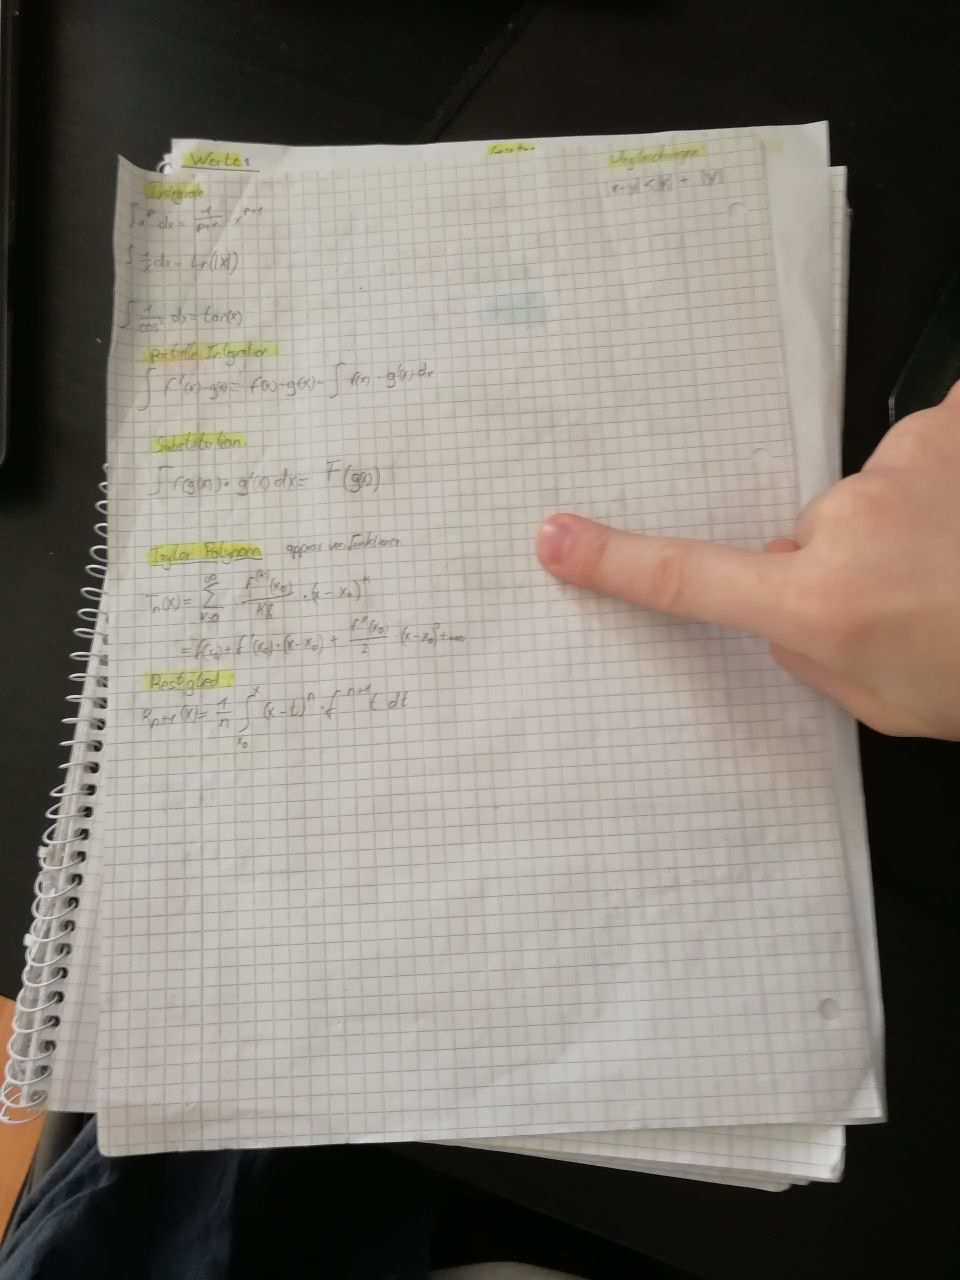 Werte:
Ungleichungen
|x+y| < |x| + |y|
Integrale
∫ x^p dx = 1/(p+1) x^(p+1)
∫ 1/x dx = ln(|x|)
∫ 1/cos² dx = tan(x)
Partielle Integration
∫ f'(x)·g(x) = f(x)·g(x) - ∫ f(x)·g'(x) dx
Substitution
∫ f(g(x))·g'(x) dx = F(g(x))
Taylor Polynom approx von Funktionen
Tn(x) = ∑_(k=0)^∞ f^(k)(x₀)/k! · (x - x₀)^k
= f(x₀) + f'(x₀)·(x-x₀) + f''(x₀)/2 ·(x-x₀)² + ...
Restglied:
R_(n+1)(x) = 1/n ∫_(x₀)^x (x-t)^n · f^(n+1) t dt